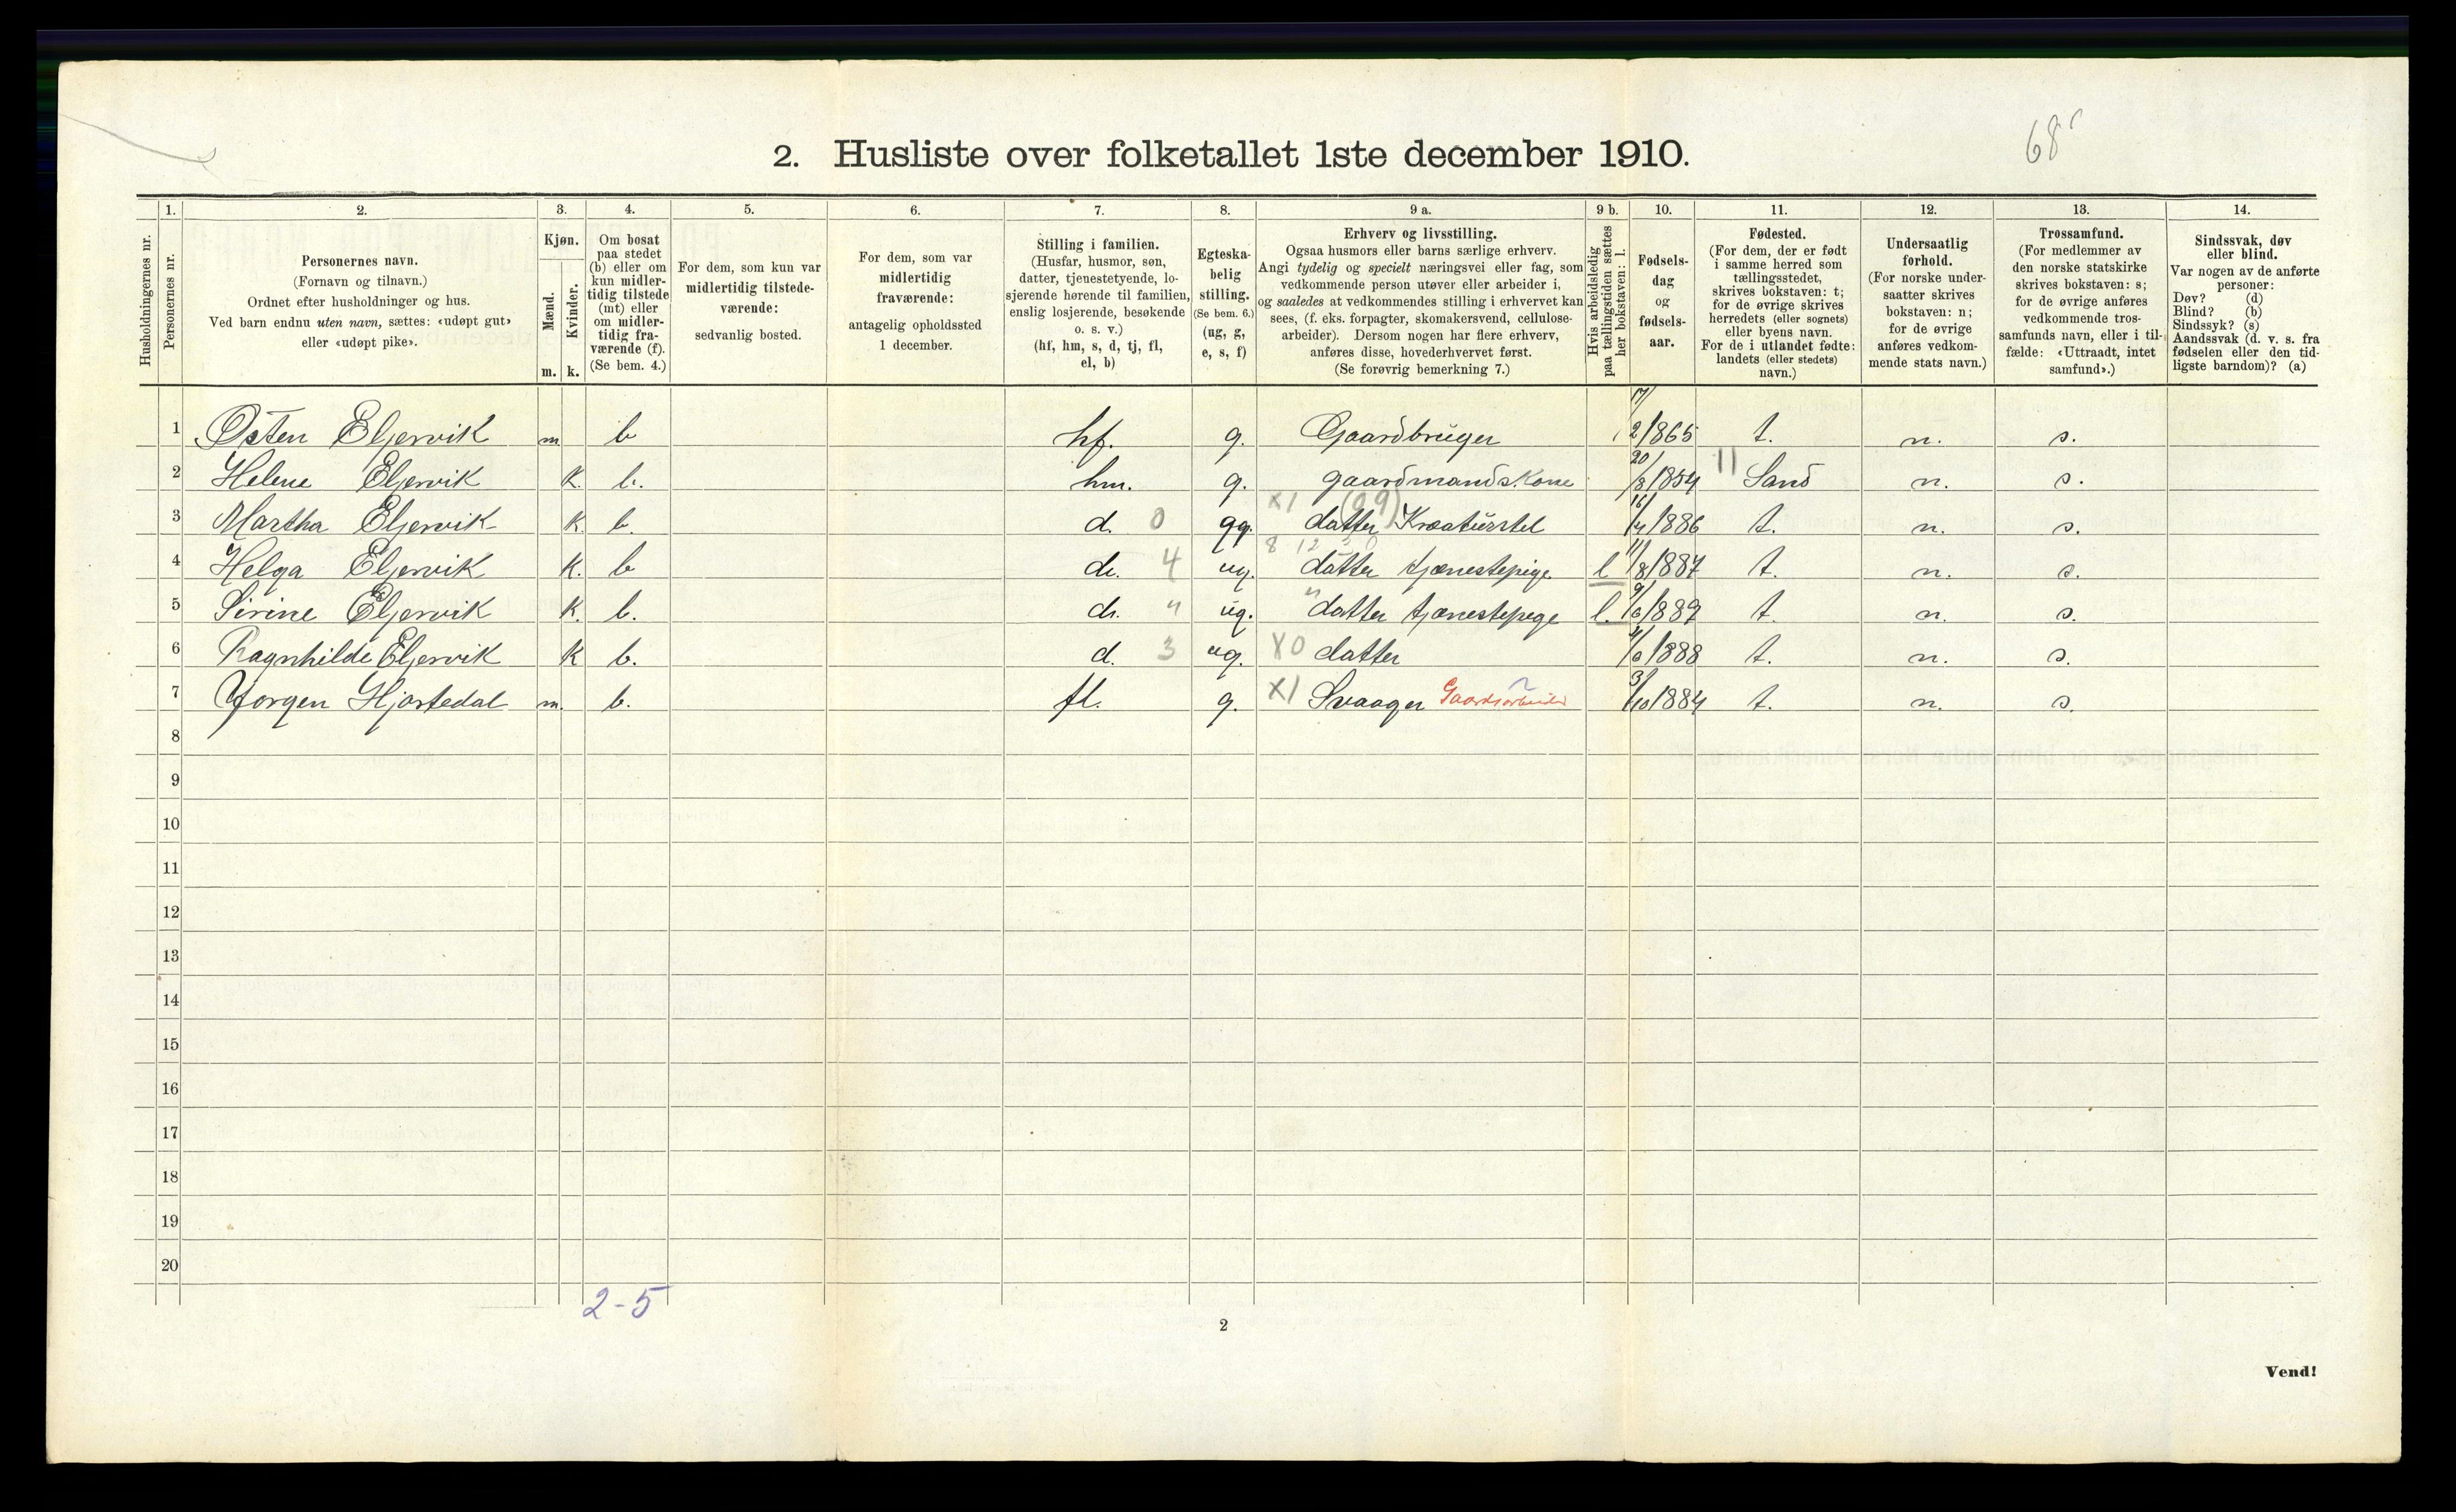 68
2. Husliste over folketallet 1ste december 1910.
Husholdningernes nr.
1. Personernes nr.
2. Personernes navn. (Fornavn og tilnavn.) Ordnet efter husholdninger og hus. Ved barn endnu uten navn, sættes: «udøpt gut» eller «udøpt pike».
3. Kjøn. Mænd. m. Kvinder. k.
4. Om bosat paa stedet (b) eller om kun midlertidig tilstede (mt) eller om midlertidig fraværende (f). (Se bem. 4.)
5. For dem, som kun var midlertidig tilstedeværende: sedvanlig bosted.
6. For dem, som var midlertidig fraværende: antagelig opholdssted 1 december.
7. Stilling i familien. (Husfar, husmor, søn, datter, tjenestetyende, losjerende hørende til familien, enslig losjerende, besøkende o. s. v.) (hf, hm, s, d, tj, fl, el, b)
8. Egteskabelig stilling. (Se bem. 6.) (ug, g, e, s, f)
9 a. Erhverv og livsstilling. Ogsaa husmors eller barns særlige erhverv. Angi tydelig og specielt næringsvei eller fag, som vedkommende person utøver eller arbeider i, og saaledes at vedkommendes stilling i erhvervet kan sees, (f. eks. forpagter, skomakersvend, cellulosearbeider). Dersom nogen har flere erhverv, anføres disse, hovederhvervet først. (Se forøvrig bemerkning 7.)
9 b. Hvis arbeidsledig paa tællingstiden sættes her bokstaven: l.
10. Fødselsdag og fødselsaar.
11. Fødested. (For dem, der er født i samme herred som tællingsstedet, skrives bokstaven: t; for de øvrige skrives herredets (eller sognets) eller byens navn. For de i utlandet fødte: landets (eller stedets) navn.)
12. Undersaatlig forhold. (For norske undersaatter skrives bokstaven: n; for de øvrige anføres vedkommende stats navn.)
13. Trossamfund. (For medlemmer av den norske statskirke skrives bokstaven: s; for de øvrige anføres vedkommende trossamfunds navn, eller i tilfælde: «Uttraadt, intet samfund».)
14. Sindssvak, døv eller blind. Var nogen av de anførte personer: Døv? (d) Blind? (b) Sindssyk? (s) Aandssvak (d. v. s. fra fødselen eller den tidligste barndom)? (a)
1 Osten Eljervik m b hf. g. Gaardbruger 17/2/865 t. n. s.
2 Helene Eljervik k. b. hm. g. gaardmandskone 20/8/1854 11 Sand n. s.
3 Martha Eljervik k. b. d. 0 X1 (09) datter Kreaturstel 16/ 1886 t. n. s.
4 Helga Eljervik k. b d. 4 ug. 8 12 datter tjenestepige l 11/8/1887 t. n. s.
5 Sirine Eljervik k. b. d. " ug. " datter tjenestepege l. 9/6/889 t. n. s.
6 Ragnhilde Eljervik k b. d. 3 ug. X0 datter 4/6/1888 t. n. s.
7 Yorgen Hjortedal m. b. fl. g. X1 Svaager Gaardsarbeider 3/10/1884 t. n. s.
8
9
10
11
12
13
14
15
16
17
18
19
20
2-5
2
Vend!